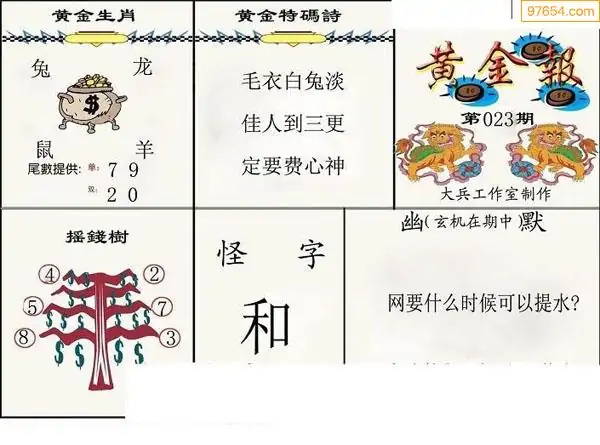 97654.com
黄金生肖
兔 龙
$
鼠 羊
尾數提供: 单: 7 9
双: 2 0
黄金特碼詩
毛衣白兔淡
佳人到三更
定要费心神
黄金報
第023期
大兵工作室制作
摇錢樹
④ ②
⑤ ⑦
⑧ ③
怪 字
和
幽(玄机在期中)默
网要什么时候可以提水?